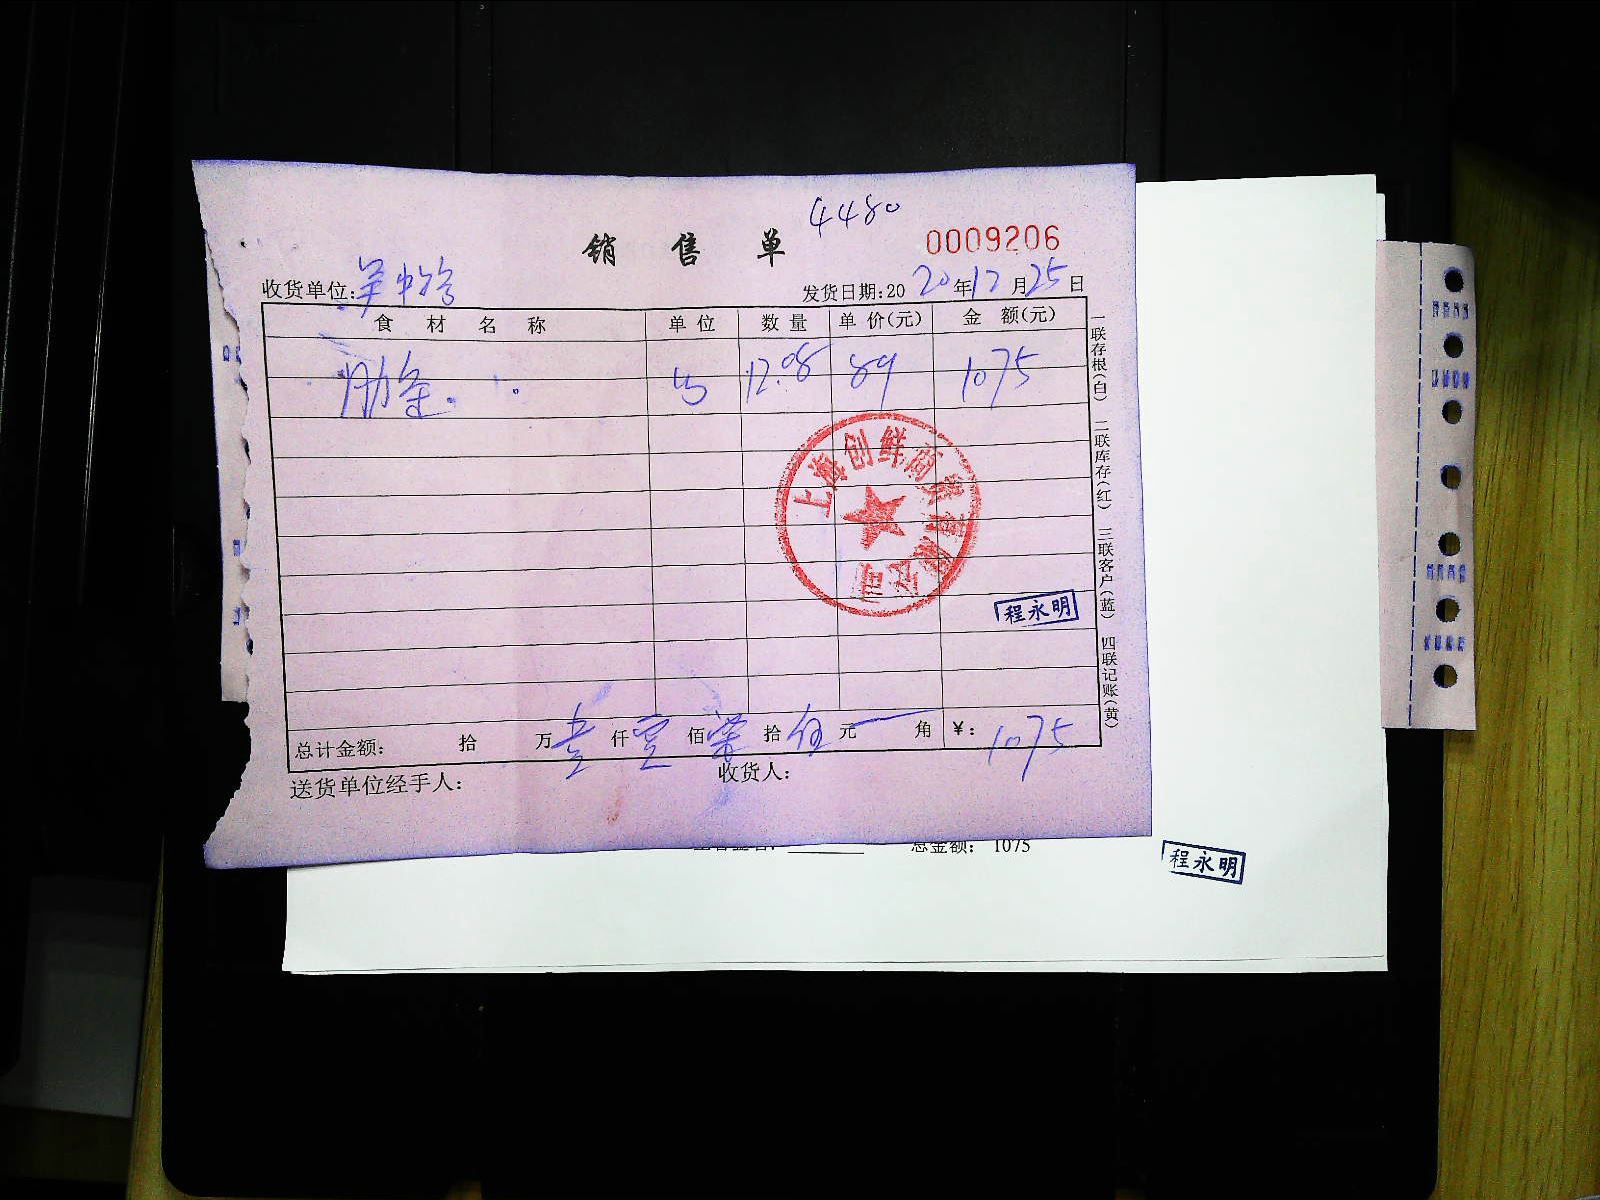 4480
销售单
0009206
收货单位:
发货日期:2020年12月25日
食材名称 单位 数量 单价(元) 金额(元)
肋 12.08 89 1075
上海创鲜商贸有限公司
程永明
总计金额: 拾 万壹仟零佰柒拾伍元 角 ¥: 1075
送货单位经手人: 收货人:
一联存根(白) 二联库存(红) 三联客户(蓝) 四联记账(黄)
总金额: 1075
程永明